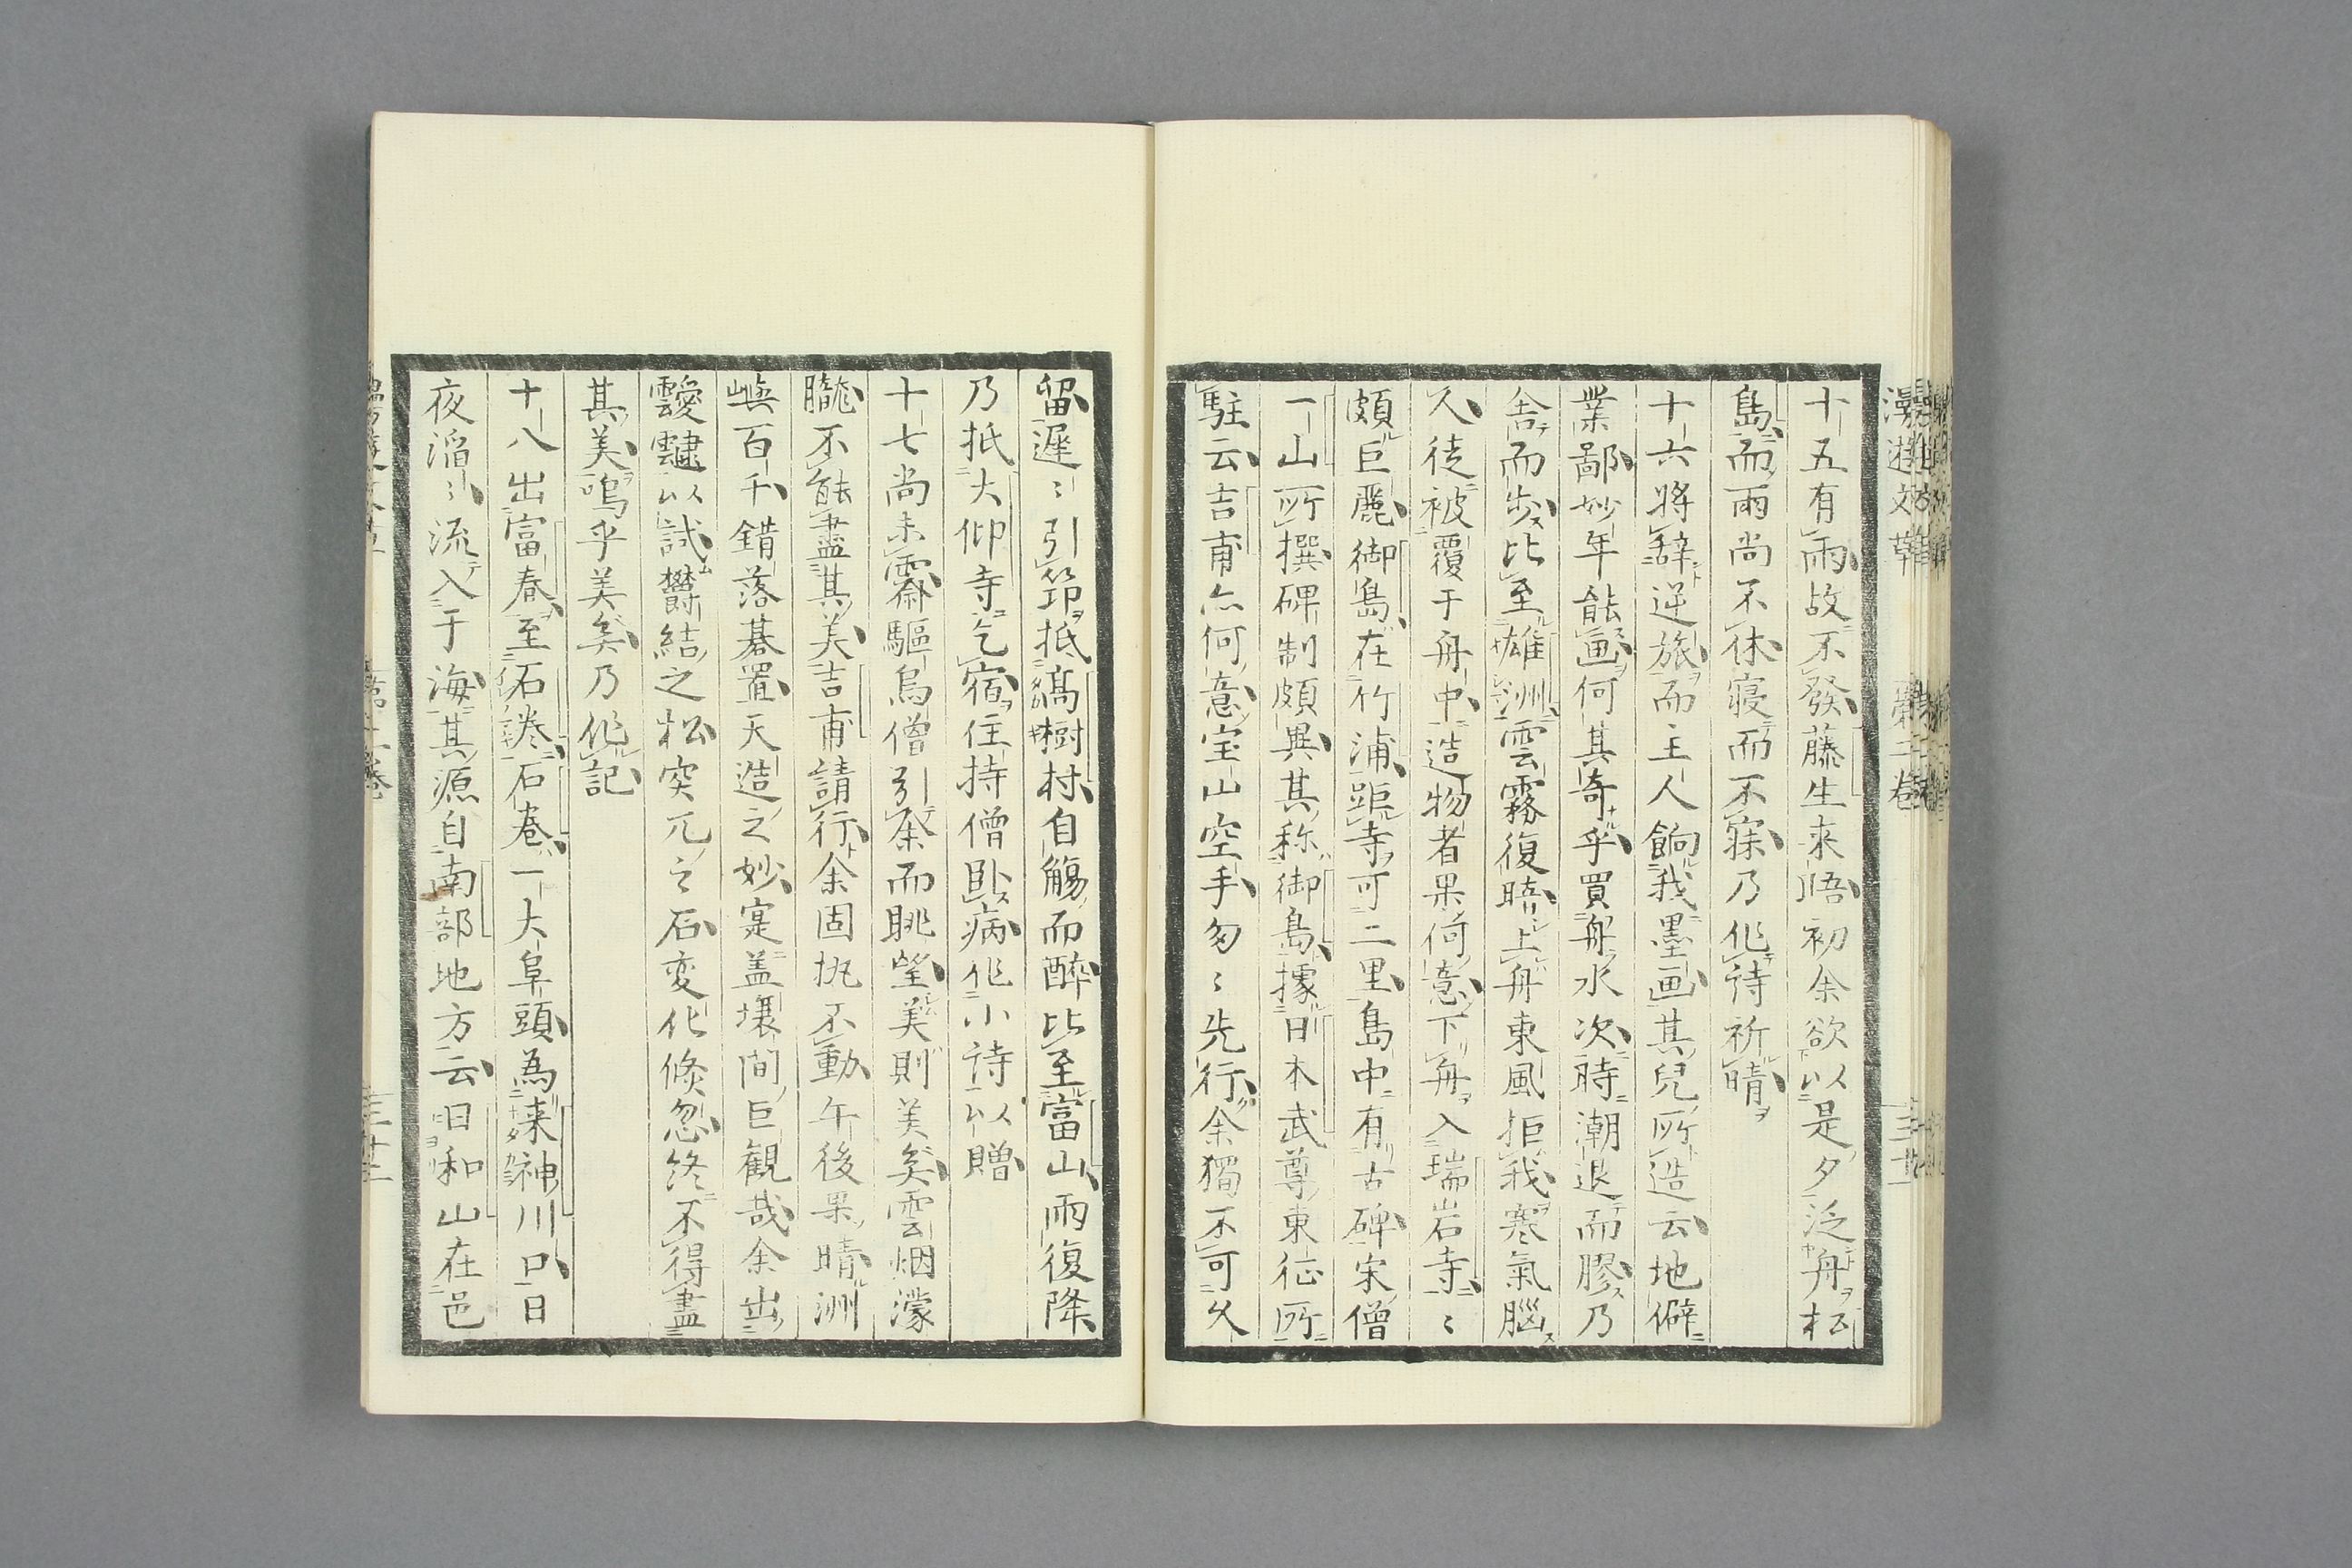 十五有雨故不發藤生来晤初余欲以是夕泛舟松
島而雨尚不休寝而不寐乃作詩祈晴
十六将辞逆旅而主人餉我墨画其兒所造云地僻
業鄙妙年能画何其奇乎買舟水次時潮退而膠乃
舎而歩比至雄洲雲霧復晤上舟東風拒我寒氣腦
人徒被覆于舟中造物者果何意下舟入瑞岩寺〻
頗巨麗御島在竹浦距寺可二里島中有古碑宋僧
一山所撰碑制頗異其称御島據日本武尊東征所
駐云吉甫亦何意宝山空手匆〻先行余獨不可久
留遲〻引筇抵高樹村自觴而醉比至富山雨復降
乃抵大仰寺乞宿住持僧臥病作小詩以贈
十七尚未霽驅烏僧引余而眺望美則美矣雲烟濛
朧不能盡其美吉甫請行余固執不動午後果晴洲
嶼百千錯落碁置天造之妙寔盖壤間巨観哉余出
靉靆以試欝結之松突兀之石変化倏忽終不得盡
其美嗚乎美矣乃作記
十八出富春至石巻石巻一大阜頭為来神川口日
夜滔〻流入于海其源自南部地方云日和山在邑
漫遊文草
第二巻